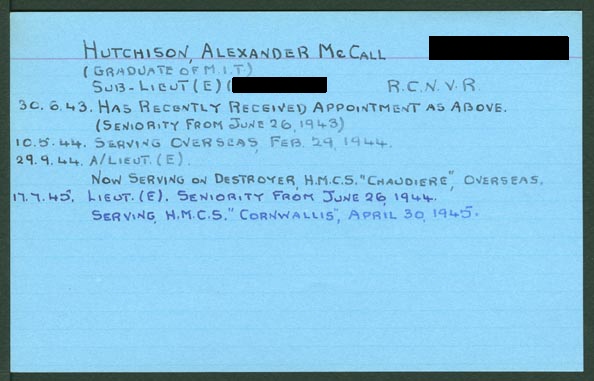 HUTCHISON, ALEXANDER McCALL
(GRADUATE OF M.I.T)
SUB-LIEUT (E) ( R.C.N.V.R.
30.6.43. HAS RECENTLY RECEIVED APPOINTMENT AS ABOVE.
(SENIORITY FROM JUNE 26, 1943)
10.5.44. SERVING OVERSEAS, FEB. 29, 1944.
29.9.44. A/LIEUT. (E).
NOW SERVING ON DESTROYER, H.M.C.S. "CHAUDIERE", OVERSEAS.
17.7.45. LIEUT. (E). SENIORITY FROM JUNE 26, 1944.
SERVING, H.M.C.S." CORNWALLIS", APRIL 30, 1945.